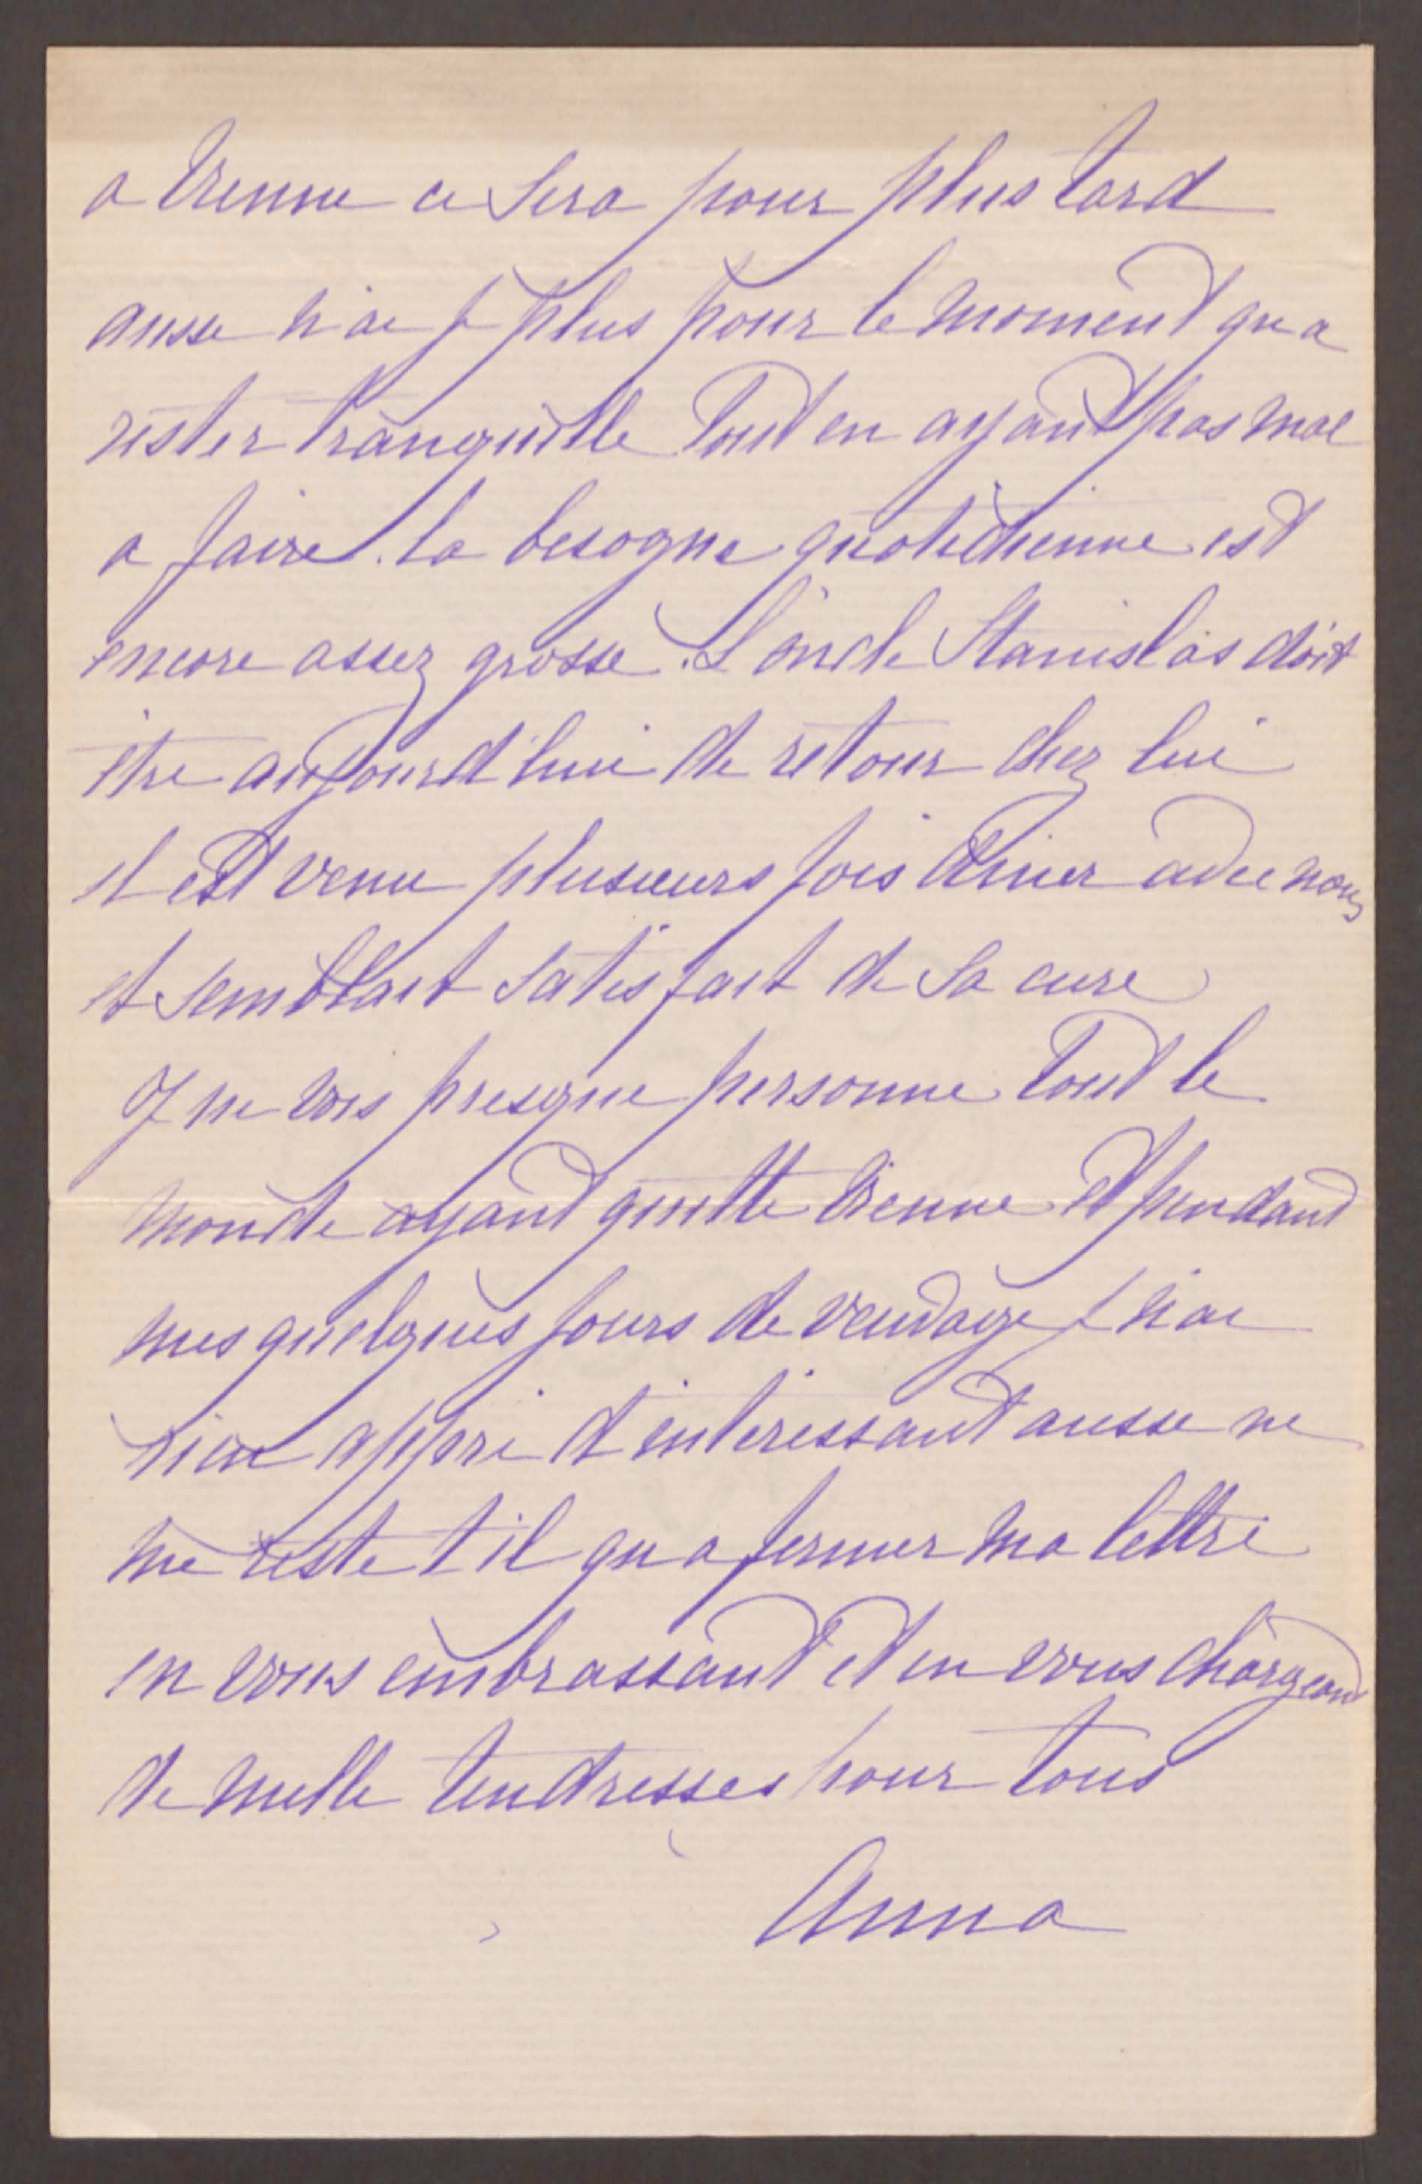 a Vienne ce sera pour plus tard
aussi n'ai je plus pour le moment qu'a
rester tranquille tout en ayant pas mal
a faire. la besogne quotidienne est
encore assez grosse. L'oncle Stanislas doit
être aujourd'hui de retour chez lui
il est venu plusieurs fois diner avec nous
et semblait satisfait de sa cure
Je ne vois presque personne tout le
monde ayant quitté Vienne et pendant
mes quelques jours de vendage je n'ai
rien appri d'interessant aussi ne
me reste t'il qu'a fermer ma lettre
en vous embrassant et en vous chargeant
de mille tendresses pour tous
Anna